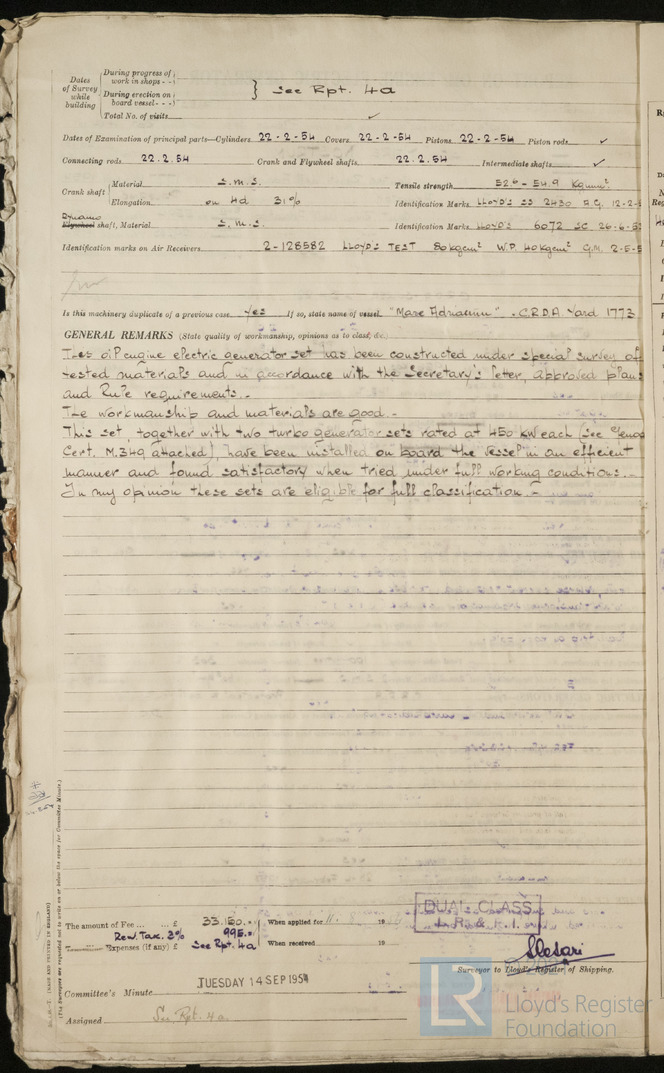 Dates of Survey while building
During progress of work in shops - -
During erection on board vessel - - -
} See Rpt. 4a
Total No. of visits ✓
Dates of Examination of principal parts—Cylinders 22-2-54 Covers 22-2-54 Pistons 22-2-54 Piston rods ✓
Connecting rods 22.2.54 Crank and Flywheel shafts 22.2.54 Intermediate shafts ✓
Crank shaft { Material S.M.S. Tensile strength
Elongation on 4d 31% Identification Marks LLOYD'S 2430
Dynamo
Flywheel shaft, Material S.M.S. Identification Marks LLOYD'S 6072
Identification marks on Air Receivers 2-128582 LLOYD'S TEST 80 kg cm² W.P. 40 kg cm² G.M.
Is this machinery duplicate of a previous case Yes If so, state name of vessel . C.R.D.A. Yard 1773
GENERAL REMARKS (State quality of workmanship, opinions as to class, &c.
oil engine electric generator set has been constructed under special survey of
tested materials and in accordance with the Secretary's letter, approved plans
and Rule requirements.-
The workmanship and materials are good.-
This set, together with two turbo generator sets rated at 450 KW each (see
Cert. M.349 attached), have been installed on board the vessel in an efficient
manner and found satisfactory when tried under full working conditions.-
In my opinion these sets are eligible for full classification.-
The amount of Fee ... .. £ 33.150.= When applied for 19
Rev. Tax. 3% 995.=
Expenses (if any) £ See Rpt. 4a When received 19
DUAL CLASS
L.R. & R.I.
Surveyor to Lloyd's Register of Shipping.
TUESDAY 14 SEP 1954
Committee's Minute
Assigned See Rpt. 4a.
(MADE AND PRINTED IN ENGLAND)
(The Surveyors are requested not to write on or below the space for Committee Minute.)
LR
Lloyd's Register
Foundation